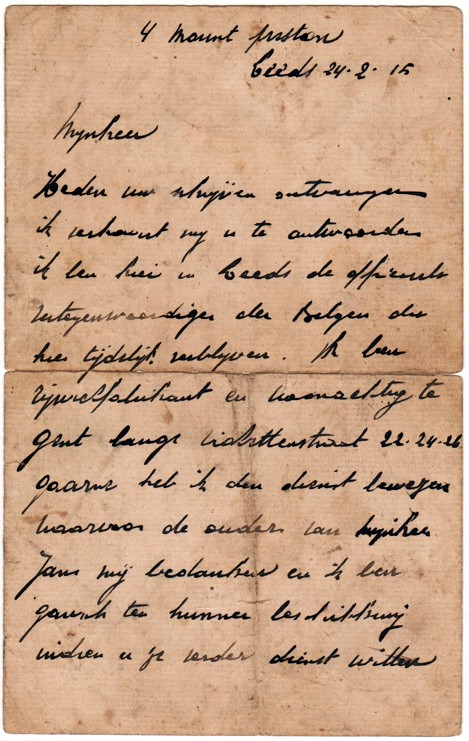 4 Mount preston
Leeds 24-2-15
Mynheer
Heden uw schrijven ontvangen
ik verhaast mij u te antwoorden
ik ben hier in Leeds de officieele
vertegenwoordiger der Belgen die
hier tijdelijk verblyven. Ik ben
rijwielfabrikant en woonachtig te
Gent lange violettenstraat 22-24-26
gaarne heb ik den dienst bewezen
waarvoor de ouders van mijnheer
Jans mij bedanken en ik ben
gansch ten hunner beschikking
indien u ze verder dienst willen